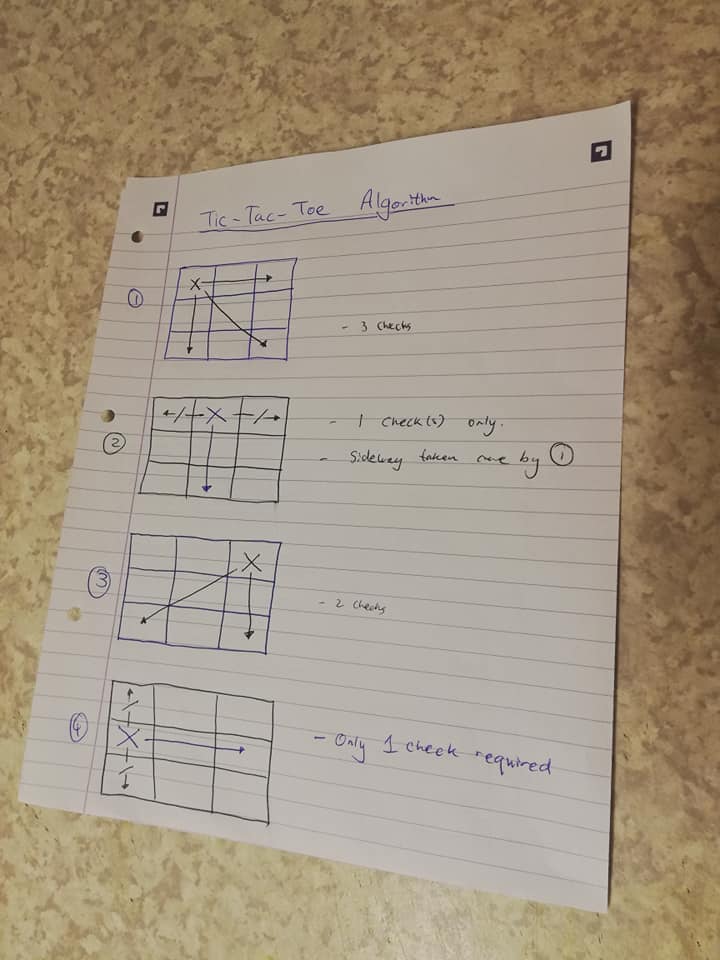 Tic-Tac-Toe Algorithm
①
X
- 3 checks
②
X
- 1 check(s) only.
- Sideway taken care by ①
③
X
- 2 checks
④
X
- Only 1 check required